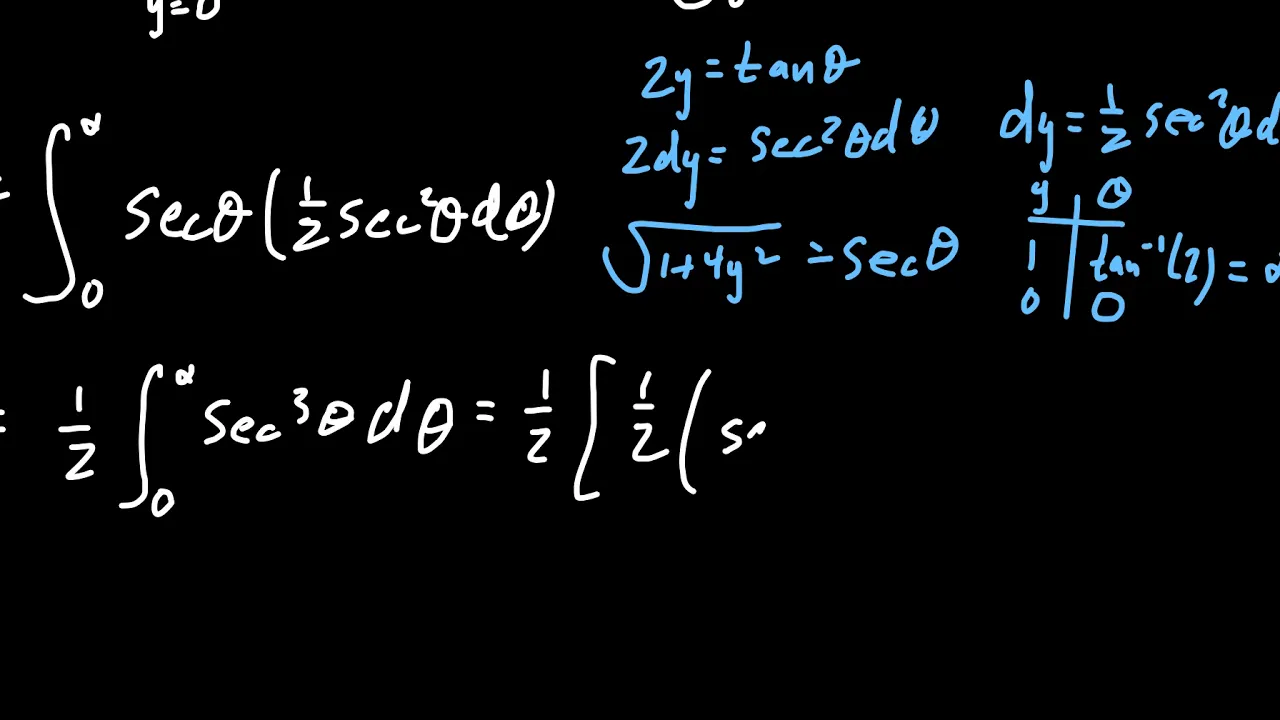 y=0
2y = tanθ
2dy = sec²θdθ
dy = 1/2 sec²θd
√(1+4y²) = secθ
y | θ
1 | tan⁻¹(2) = α
0 | 0
= ∫₀^α secθ(1/2 sec²θdθ)
= 1/2 ∫₀^α sec³θdθ = 1/2 [ 1/2 ( s